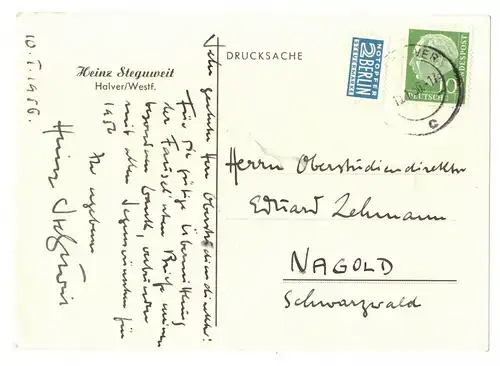 10.I.1956.
Heinz Steguweit
Halver/Westf.
Sehr geehrter Herr Oberstudiendirektor!
Für die gütige Übermittlung
der Briefe meinen
besonderen Dank, verbunden
mit allen Segenswünschen für
1956
Ihr ergebener
Heinz Steguweit
DRUCKSACHE
NOTOPFER
2 BERLIN
STEUERMARKE
DEUTSCHE
BUNDESPOST
10
VER
c
Herrn Oberstudiendirektor
Eduard Lehmann
NAGOLD
Schwarzwald